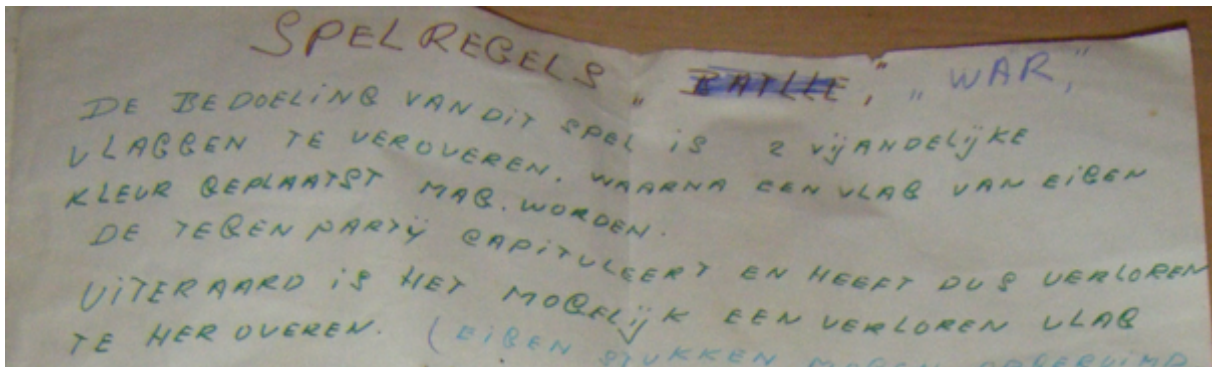 SPELREGELS „ BATLLE," „ WAR,"
DE BEDOELING VAN DIT SPEL IS 2 VIJANDELIJKE
VLAGGEN TE VEROVEREN. WAARNA EEN VLAG VAN EIGEN
KLEUR GEPLAATST MAG. WORDEN.
DE TEGENPARTIJ CAPITULEERT EN HEEFT DUS VERLOREN
UITERAARD IS HET MOGELIJK EEN VERLOREN VLAG
TE HEROVEREN. (EIGEN STUKKEN MOGEN OPGERUIMD